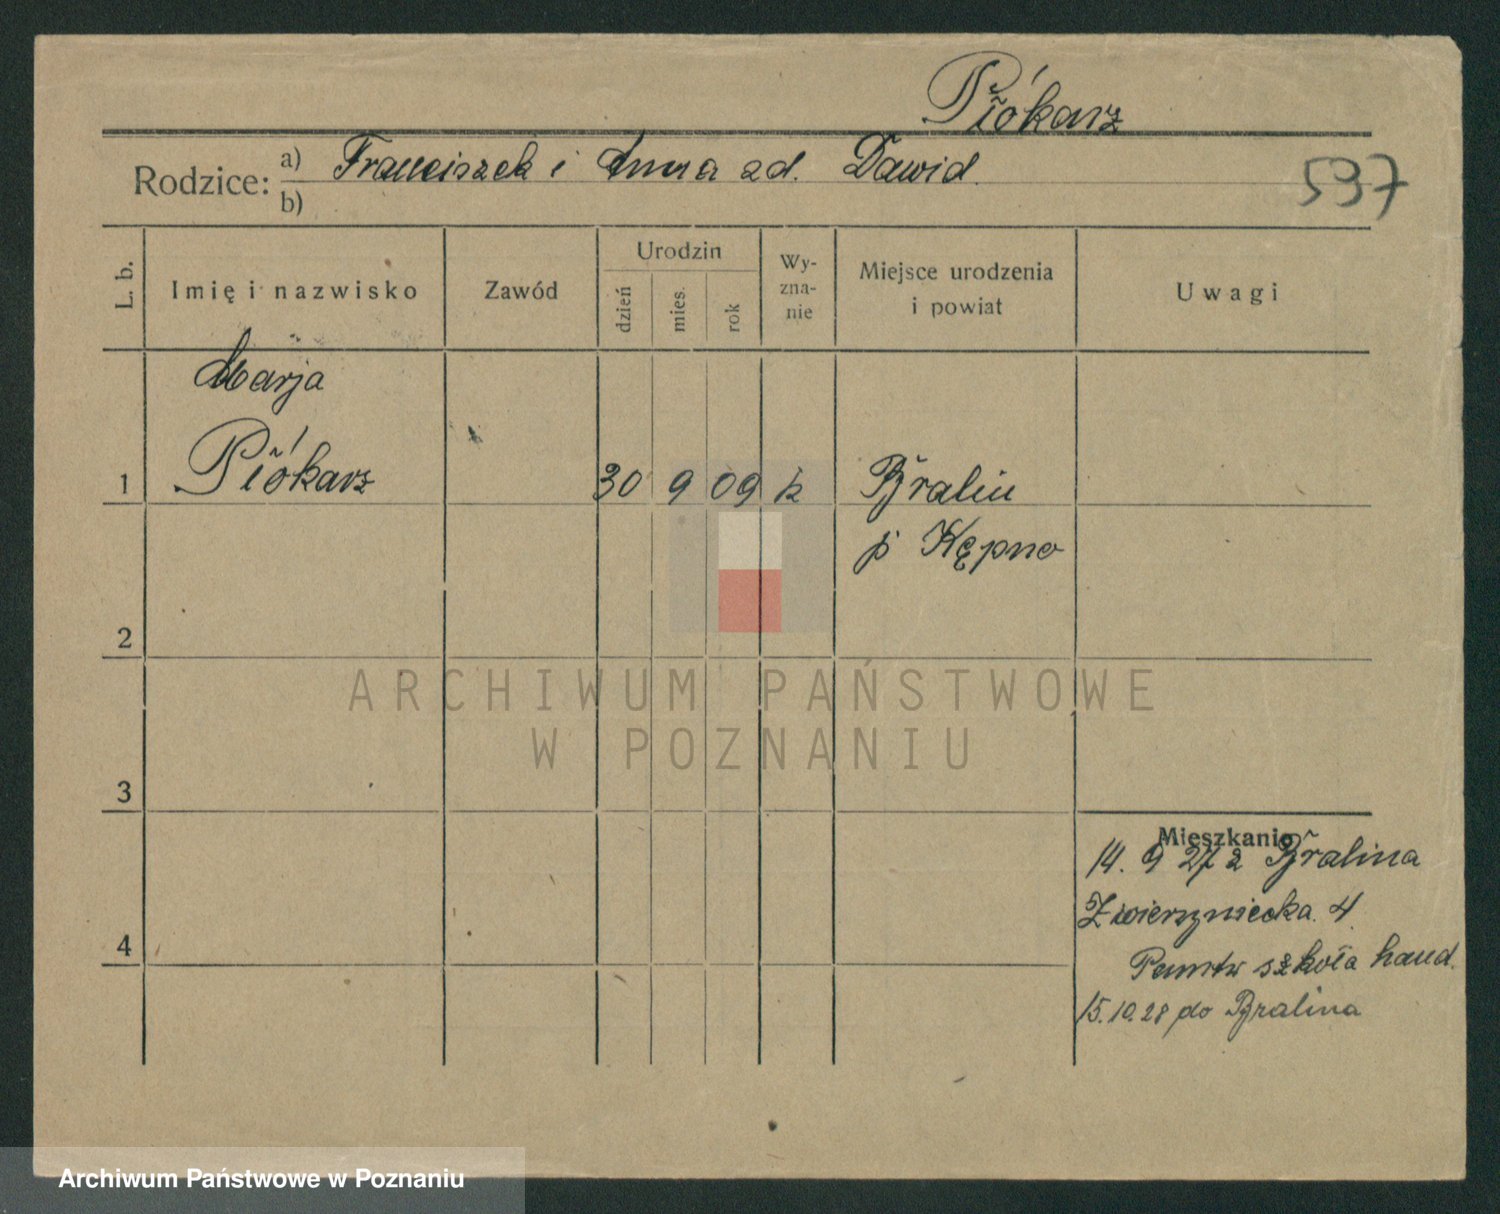 Piókarz
Rodzice: a) Franciszek i Anna zd. Dawid
b)
537
L. b.
Imię i nazwisko
Zawód
Urodzin
dzień
mies.
rok
Wy-
zna-
nie
Miejsce urodzenia
i powiat
Uwagi
Marja
1 Piókarz 30 9 09 k Bralin
p Kępno
2
ARCHIWUM PAŃSTWOWE
W POZNANIU
3
Mieszkanie
14. 9 27 z Bralina
Zwierzyniecka 4
szkoła hand.
15.10.28 do Bralina
4
Archiwum Państwowe w Poznaniu